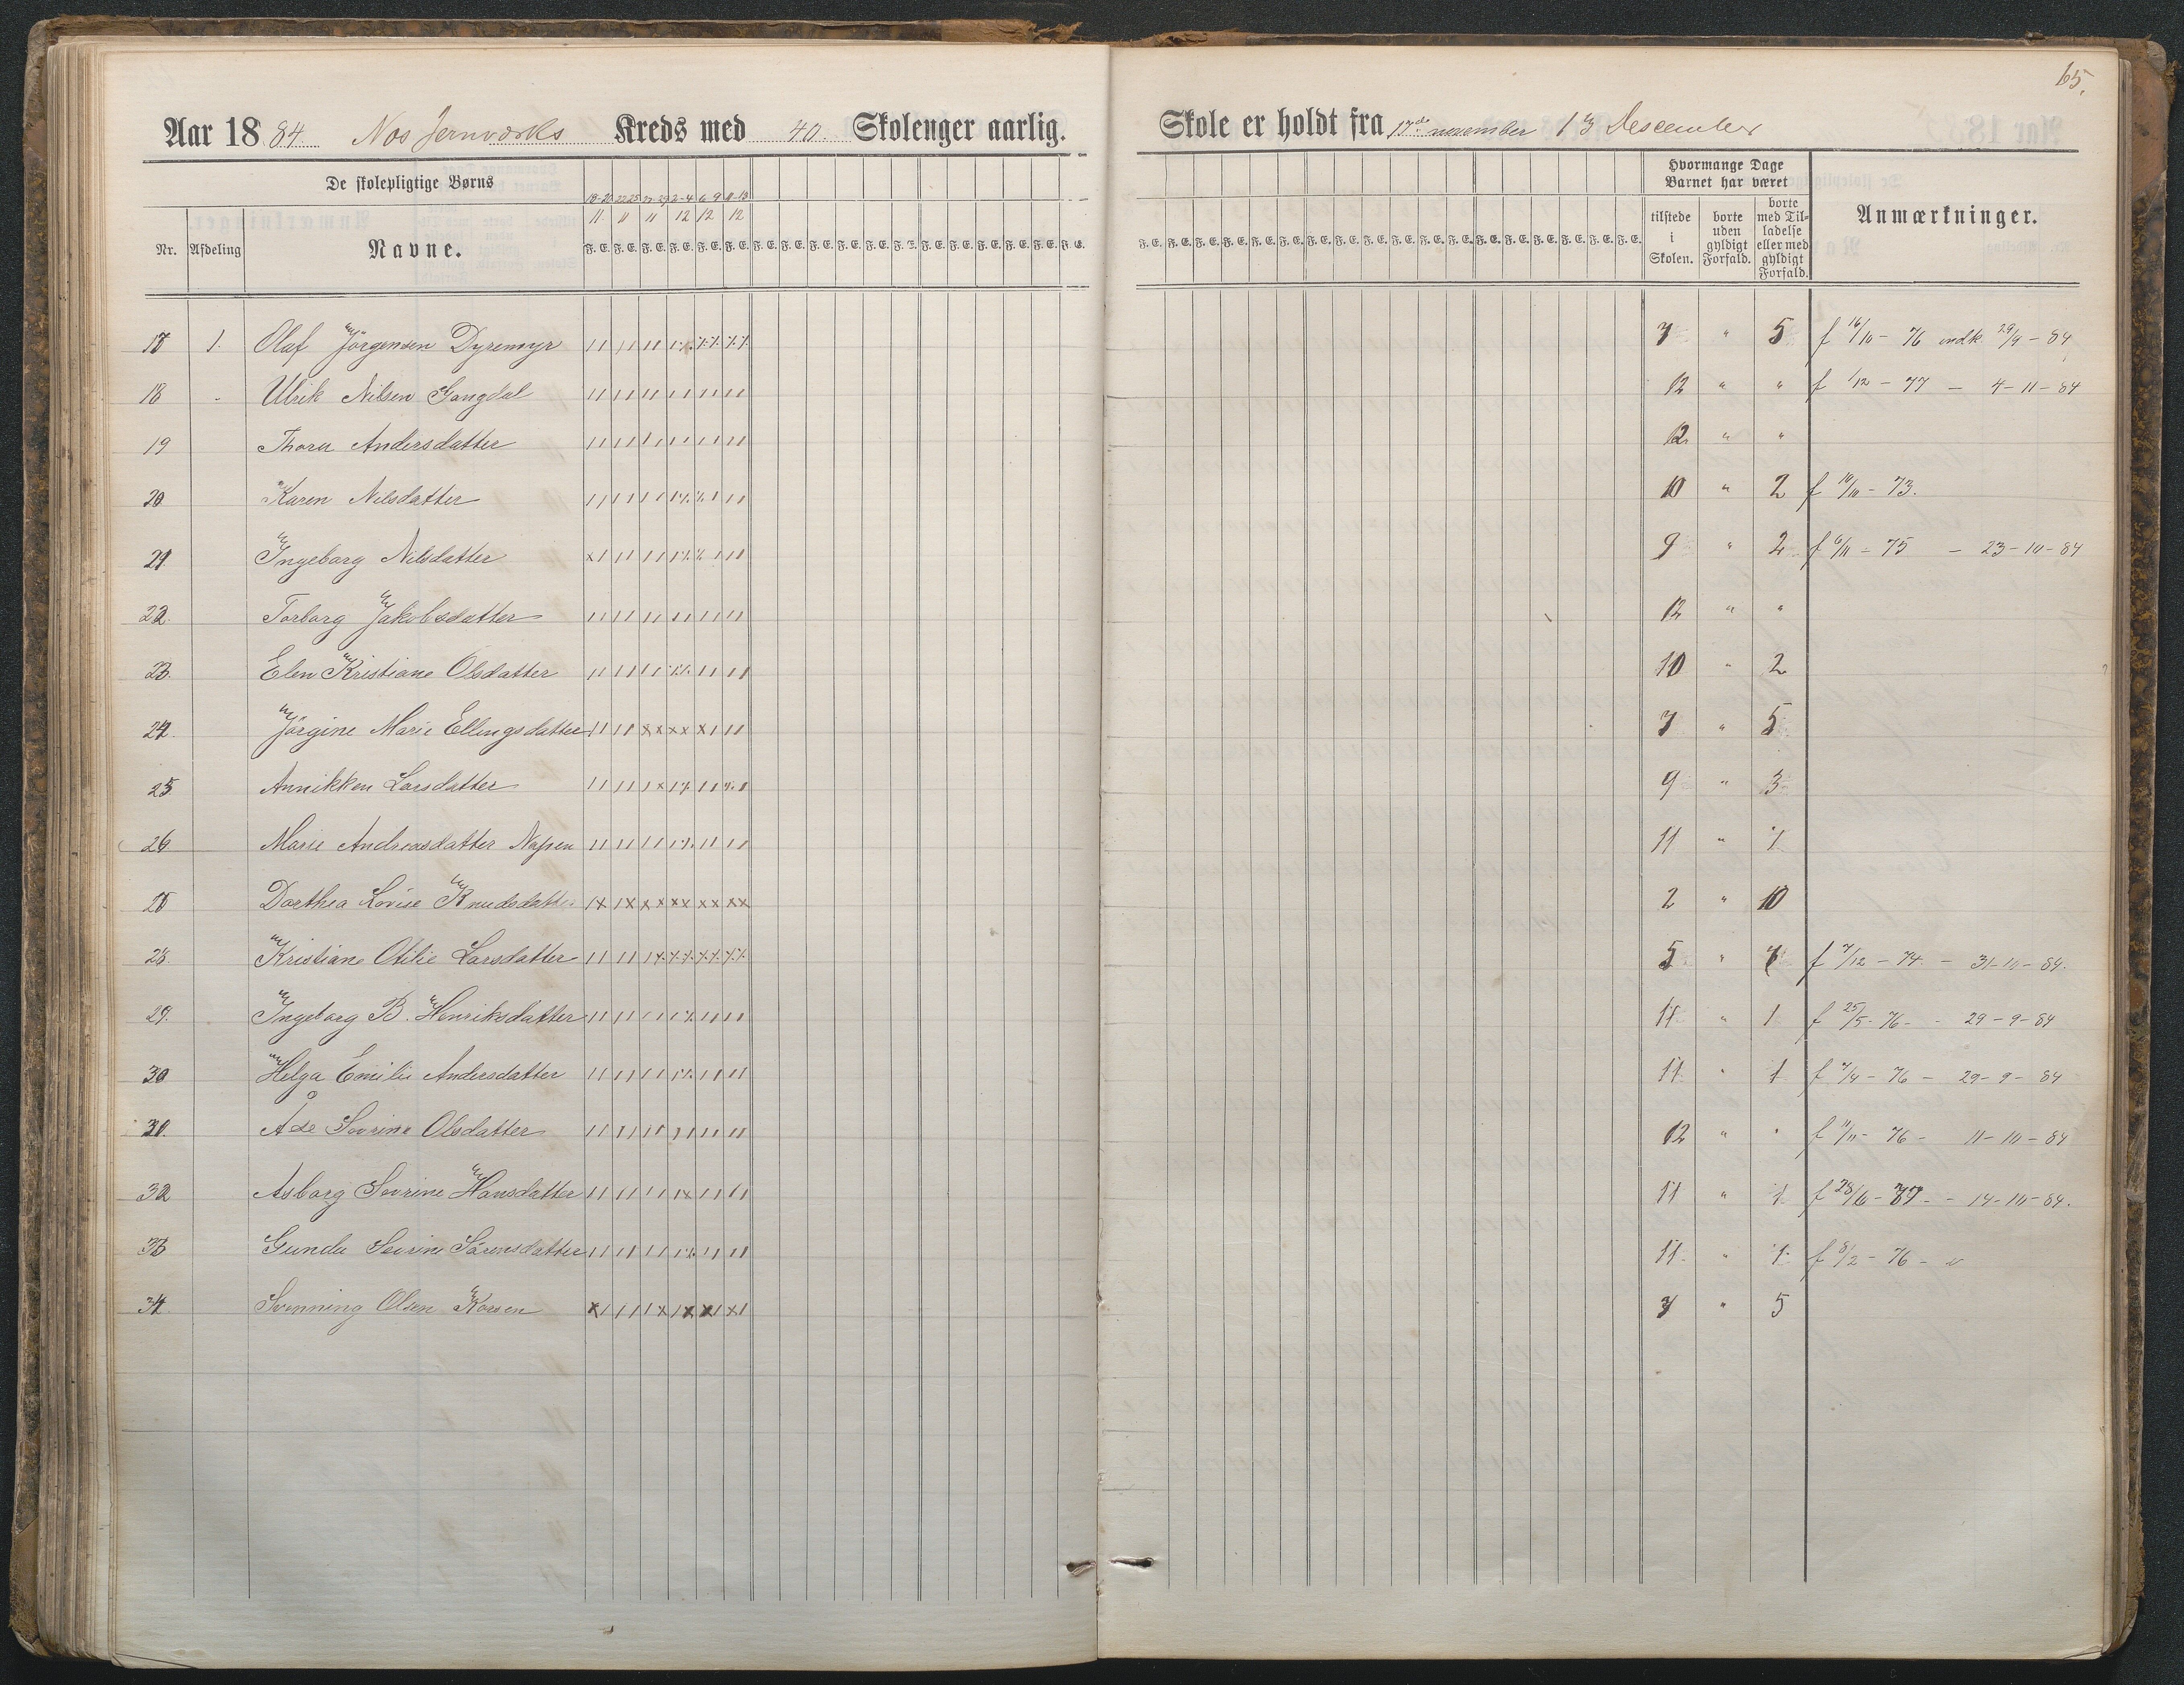 65.
Aar 1884. Nes Jernværks Kreds med 40. Skoleuger aarlig. Skole er holdt fra 17de november 13 Descember
De skolepligtige Børns
Hvormange Dage Barnet har været
18-20 22 25 27-29 2-4 6 9 11-13
11. 11 11 12 12 12
Nr. Afdeling Navne. F. E. F. E. F. E. F. E. F. E. F. E. tilstede i Skolen. borte uden gyldigt Forfald. borte med Tilladelse eller med gyldigt Forfald. Anmærkninger.
17 1. Olaf Jörgensen Dyremyr 7 " 5 f 16/10 - 76 indk. 29/9 - 84
18 - Ulrik Nilsen Gangdal 12 " " f 1/12 - 77 - 4-11-84
19 Thora Andersdatter 12 " "
20 Karen Nilsdatter 10 " 2 f 10/11 - 73.
21 Ingeborg Nilsdatter 9 " 2 f 6/11 - 75 - 23-10-84
22. Torborg Jakobsdatter 12 " "
23. Elen Kristiane Olsdatter 10 " 2
24. Jörgine Marie Ellingsdatter 7 " 5
25 Annikken Larsdatter 9 " 3
26 Marie Andreasdatter 11 " 1
Dorthea Lovise Knudsdatter 2 " 10
28. Kristiane Otilie Larsdatter 5 " 7 f 7/12 - 74 - 31-10-84.
29. Ingeborg B. Henriksdatter 11 " 1 f 25/5 - 76 - 29-9-84
30 Helga Emilie Andersdatter 11 " 1 f 7/4 - 76 - 29-9-84
Åse Severine Olsdatter 12 " " f 11/11 - 76 - 11-10-84
32 Asborg Sevrine Hansdatter 11 " 1 f 28/6 - 77 - 14-10-84.
33 Gunda Sevrine Sörensdatter 11 " 1 f 8/2 - 76 -
34. Svenning Olsen 7 " 5